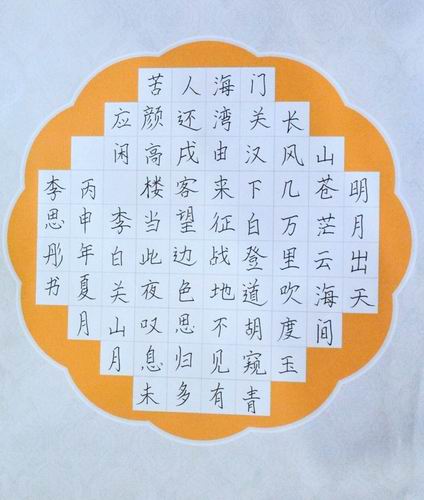 明月出天
山苍茫云海间
长风几万里吹度玉
门关汉下白登道胡窥青
海湾由来征战地不见有
人还戍客望边色思归多
苦颜高楼当此夜叹息未
应闲 李白关山月
丙申年夏月
李思彤书